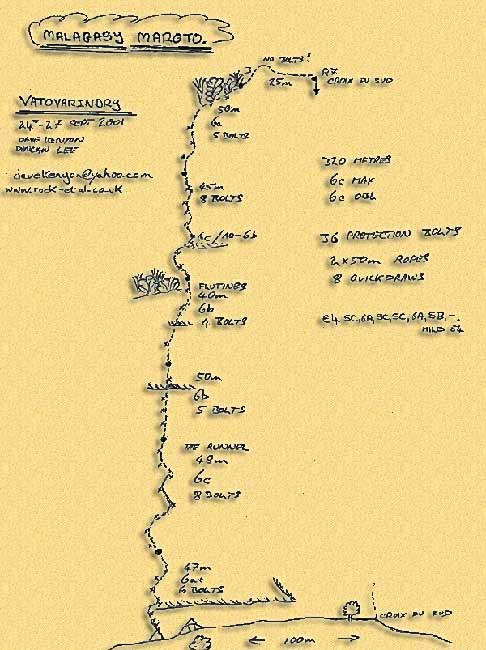 MALAGASY MAROTO.
VATOVARINDRY
24th-27 SEPT 2001
DAVE KENYON
DUNCAN LEE
davekenyon@yahoo.com
www.rock-et-al.co.uk
NO BOLTS!
25m
R7
CROIX DU SUD
50m
6a
5 BOLTS
45m
8 BOLTS
6c/A0-6b
FLUTINGS
40m
6b
4 BOLTS
50m
6b
5 BOLTS
THE RUNNER
48m
6c
8 BOLTS
47m
6a+
6 BOLTS
320 METRES
6c MAX
6c OBL
36 PROTECTION BOLTS
2x50m ROPES
8 QUICKDRAWS
E4, 5C, 6A, 5C, 5C, 6A, 5B, -.
MILD E4
CROIX DU SUD
100m